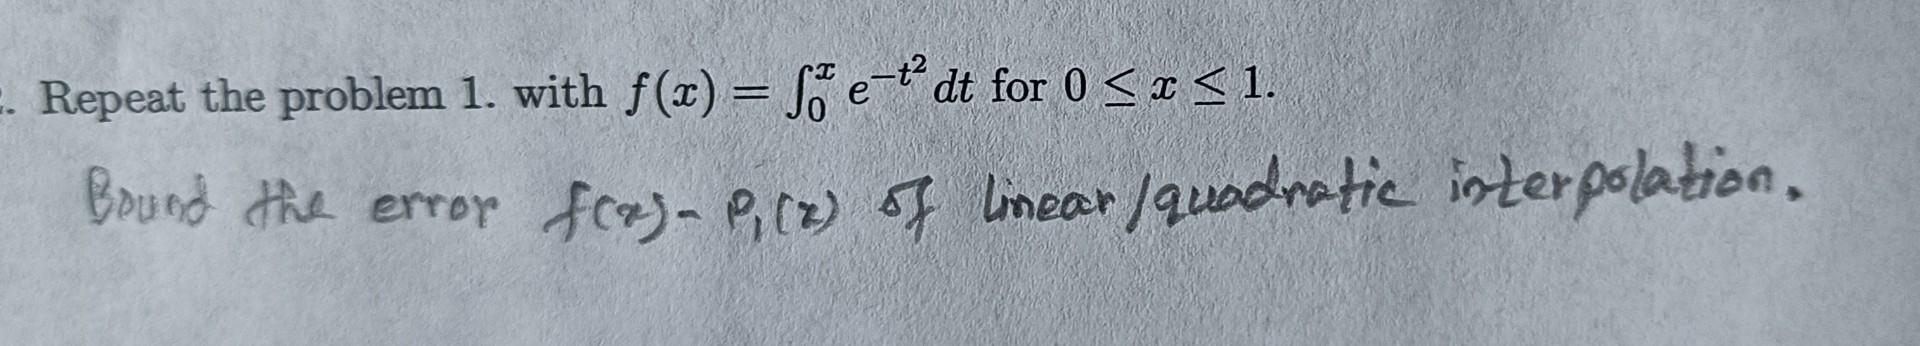 . Repeat the problem 1. with f(x) = ∫₀ˣ e^{-t²} dt for 0 ≤ x ≤ 1.
Bound the error f(x) - P₁(x) of linear/quadratic interpolation.